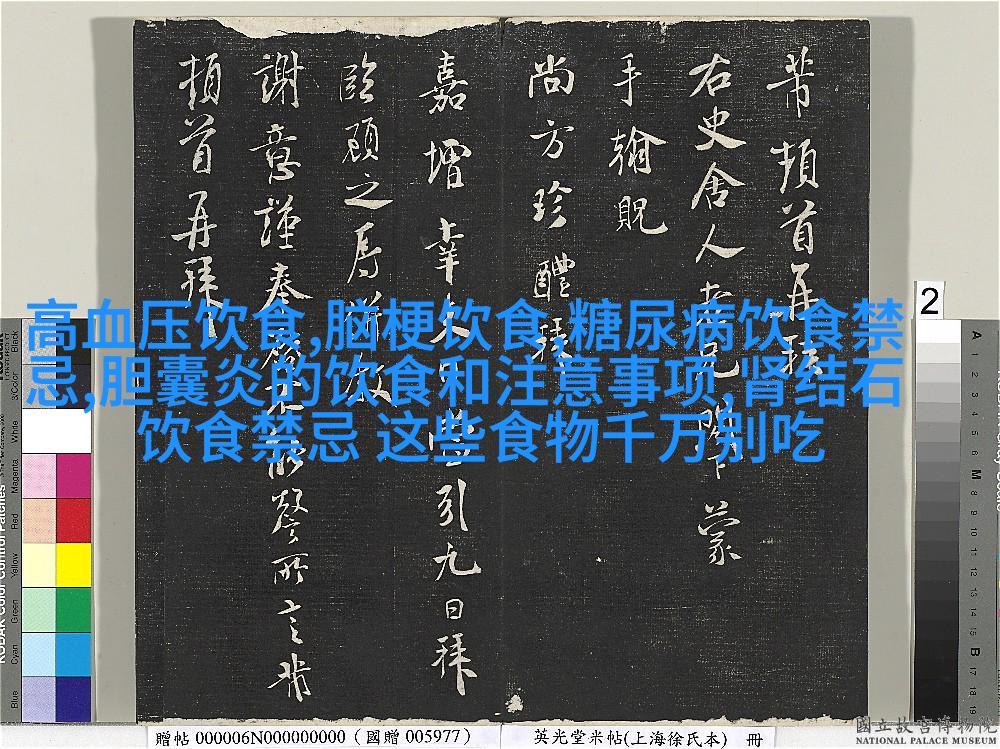 芾頓首再拜
右史舍人老兄閤下蒙
手翰貺
尚方珍醴拜
嘉增幸引九日拜
臨顧之辱
謝意謹奉啓不能罄所言芾
頓首再拜
高血压饮食,脑梗饮食,糖尿病饮食禁
忌,胆囊炎的饮食和注意事项,肾结石
饮食禁忌 这些食物千万别吃
2
KODAK Color Control Patches
Blue
Cyan
Green
Yellow
Red
Magenta
White
3/Color
Black
A 1 2 3 4 5 6 M 8 9 10 11 12 13 14 15 B 17 18 19
贈帖 000006N000000000 (國贈 005977)
英光堂米帖(上海徐氏本) 冊
國立故宮博物院
NATIONAL PALACE MUSEUM